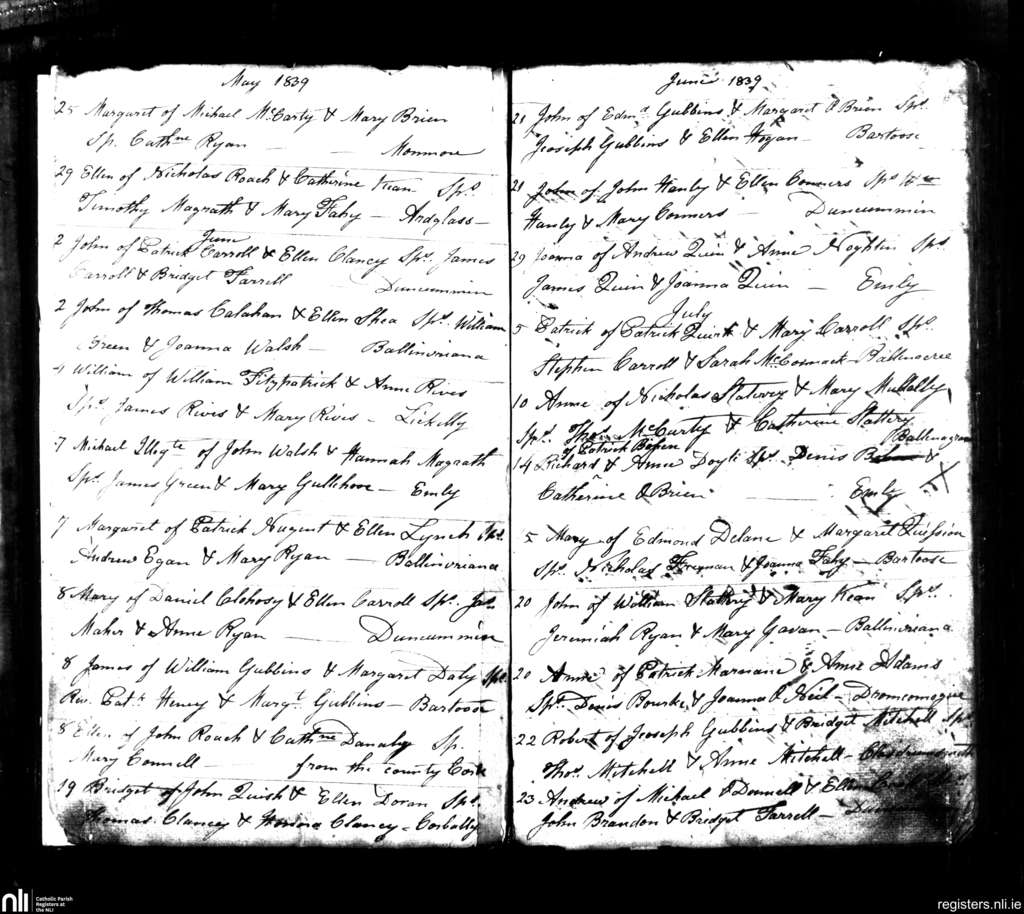 May 1839
25 Margaret of Michael McCarty & Mary Brien
Sp. Cathne Ryan — Monmore
29 Ellen of Nicholas Roach & Catherine Kean Sprs
Timothy Magrath & Mary Fahy — Ardglass
June
2 John of Patrick Carroll & Ellen Clancy Sprs James
Carroll & Bridget Farrell Duncummin
2 John of Thomas Calahan & Ellen Shea Sprs William
Breen & Joanna Walsh — Ballinvriana
4 William of William Fitzpatrick & Anne Rives
Sprs James Rives & Mary Rives — Lickelly
7 Michael Illegte of John Walsh & Hannah Magrath
Sprs James Green & Mary — Emly
7 Margaret of Patrick Nugent & Ellen Lynch Sprs
Andrew Egan & Mary Ryan — Ballinvriana
8 Mary of Daniel Clohosy & Ellen Carroll Sprs Jas
Maher & Anne Ryan — Duncummin
8 James of William Gubbins & Margaret Daly Sprs
Rev. Patk Heney & Margt Gubbins — Bartoose
8 Ellen of John Roach & Cathne Danahy Sp.
Mary Connell — from the county Cork
19 Bridget of John Quish & Ellen Doran Sprs
Thomas Clancy & Honora Clancy — Corbally
June 1839
21 John of Edmd Gubbins & Margaret O Brien Sprs
Joseph Gubbins & Ellen Hogan — Bartoose
21 John of John Hanly & Ellen Conners Sprs Wm
Hanly & Mary Conners — Duncummin
29 Joanna of Andrew Quin & Anne Sprs
James Quin & Joanna Quin — Emly
July
5 Patrick of Patrick Quirk & Mary Carroll Sprs
Stephen Carroll & Sarah McCormack — Ballinacree
10 Anne of Nicholas & Mary Mullally
Sprs Thos McCarty & Catherine Slattery
of Patrick Bohen
14 Richard & Anne Doyle Sprs Denis &
Catherine O Brien — Emly
5 Mary of Edmond Delane & Margaret
Sprs Nicholas & Joanna Fahy — Bartoose
20 John of William Slattery & Mary Kean Sprs
Jeremiah Ryan & Mary Gavan — Ballinvriana
20 Anne of Patrick Marnane & Anne Adams
Sprs Denis Bourke & Joanna O Neil — Dromcomogue
22 Robert of Joseph Gubbins & Bridget Mitchell Sprs
Thos Mitchell & Anne Mitchell —
23 Andrew of Michael O Donnell & Ellen
John Brandon & Bridget Farrell —
nli
Catholic Parish
Registers at
the NLI
registers.nli.ie